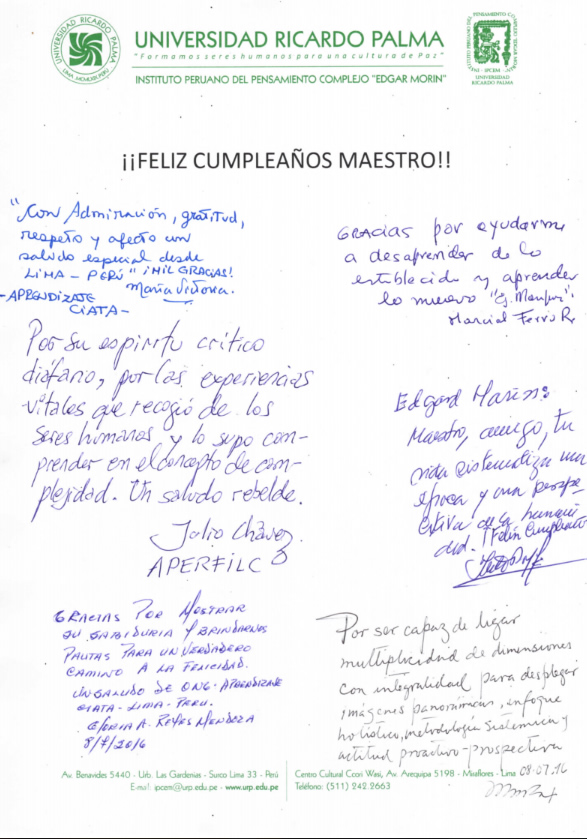 UNIVERSIDAD RICARDO PALMA
LIMA
UNIVERSIDAD RICARDO PALMA
"Formamos seres humanos para una cultura de Paz"
INSTITUTO PERUANO DEL PENSAMIENTO COMPLEJO "EDGAR MORIN"
INSTITUTO PERUANO DEL PENSAMIENTO COMPLEJO EDGAR MORIN
IPCEM
UNIVERSIDAD
RICARDO PALMA
¡¡FELIZ CUMPLEAÑOS MAESTRO!!
"Con Admiración, gratitud,
respeto y afecto un
saludo especial desde
LIMA – PERÚ" ¡MIL GRACIAS!
María Victoria.
-APRENDIZAJE
CIATA-
GRACIAS por ayudarme
a desaprender de lo
establecido y aprender
lo nuevo
Marcial Ferro R.
Por su espíritu crítico
diáfano, por las experiencias
vitales que recogió de los
seres humanos y lo supo com-
prender en el concepto de com-
plejidad. Un saludo rebelde.
Julio Chávez
APERFILC
Edgard Morin:
Maestro, amigo, tu
vida sistematiza una
época y una perspe
ctiva de la humani
dad. ¡Feliz Cumpleaños
GRACIAS POR MOSTRAR
SU SABIDURIA Y BRINDARNOS
PAUTAS PARA UN VERDADERO
CAMINO A LA FELICIDAD.
UN SALUDO DE ONG. APRENDIZAJE
CIATA - LIMA - PERU.
GLORIA A. REYES MENDOZA
8/7/2016
Por ser capaz de ligar
multiplicidad de dimensiones
con integralidad para desplegar
imágenes panorámicas, enfoque
holístico, metodología sistémica y
actitud proactivo-prospectiva
08-07-16
Av. Benavides 5440 - Urb. Las Gardenias - Surco Lima 33 - Perú
E-mail: ipcem@urp.edu.pe - www.urp.edu.pe
Centro Cultural Ccori Wasi, Av. Arequipa 5198 - Miraflores - Lima
Teléfono: (511) 242 2663